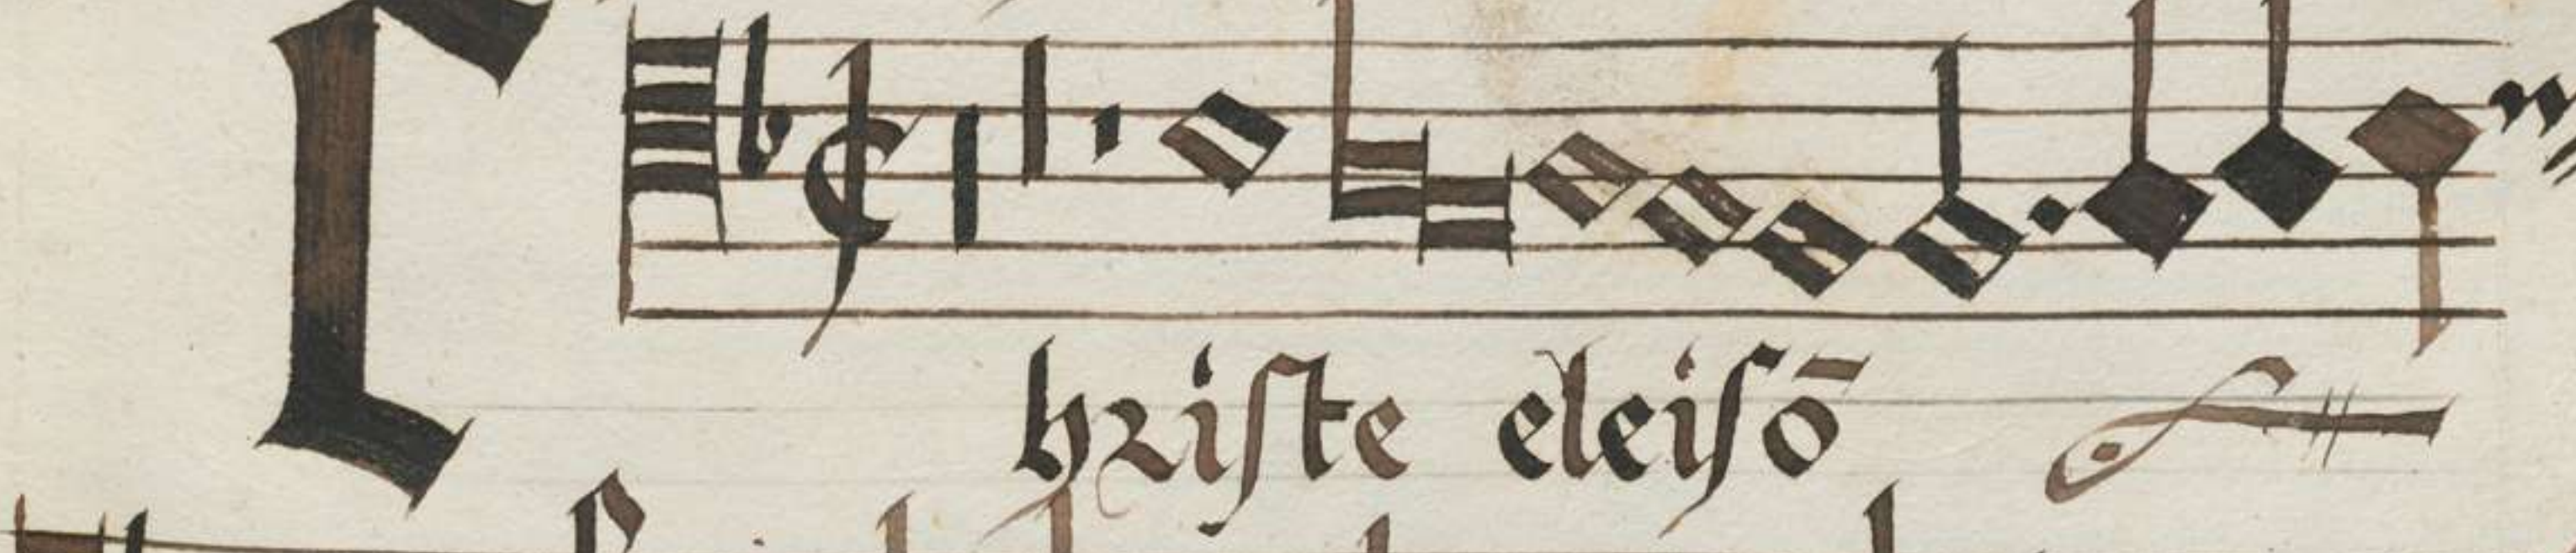 Christe eleisō